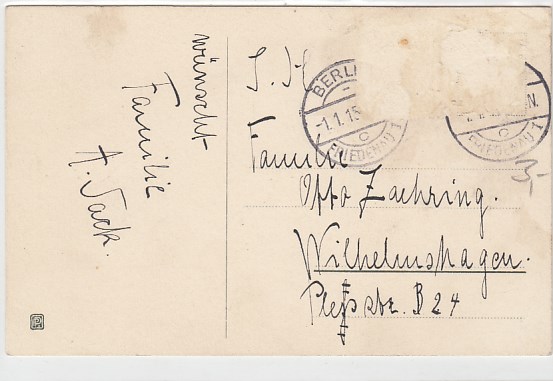 wünscht
Familie
A. Nack.
S. H
BERLIN
-1.1.15
C
FRIEDENAU 1
N.
C
FRIEDENAU 1
3,-
Familie
Otto Zaehring.
Wilhelmshagen.
Str. B 24